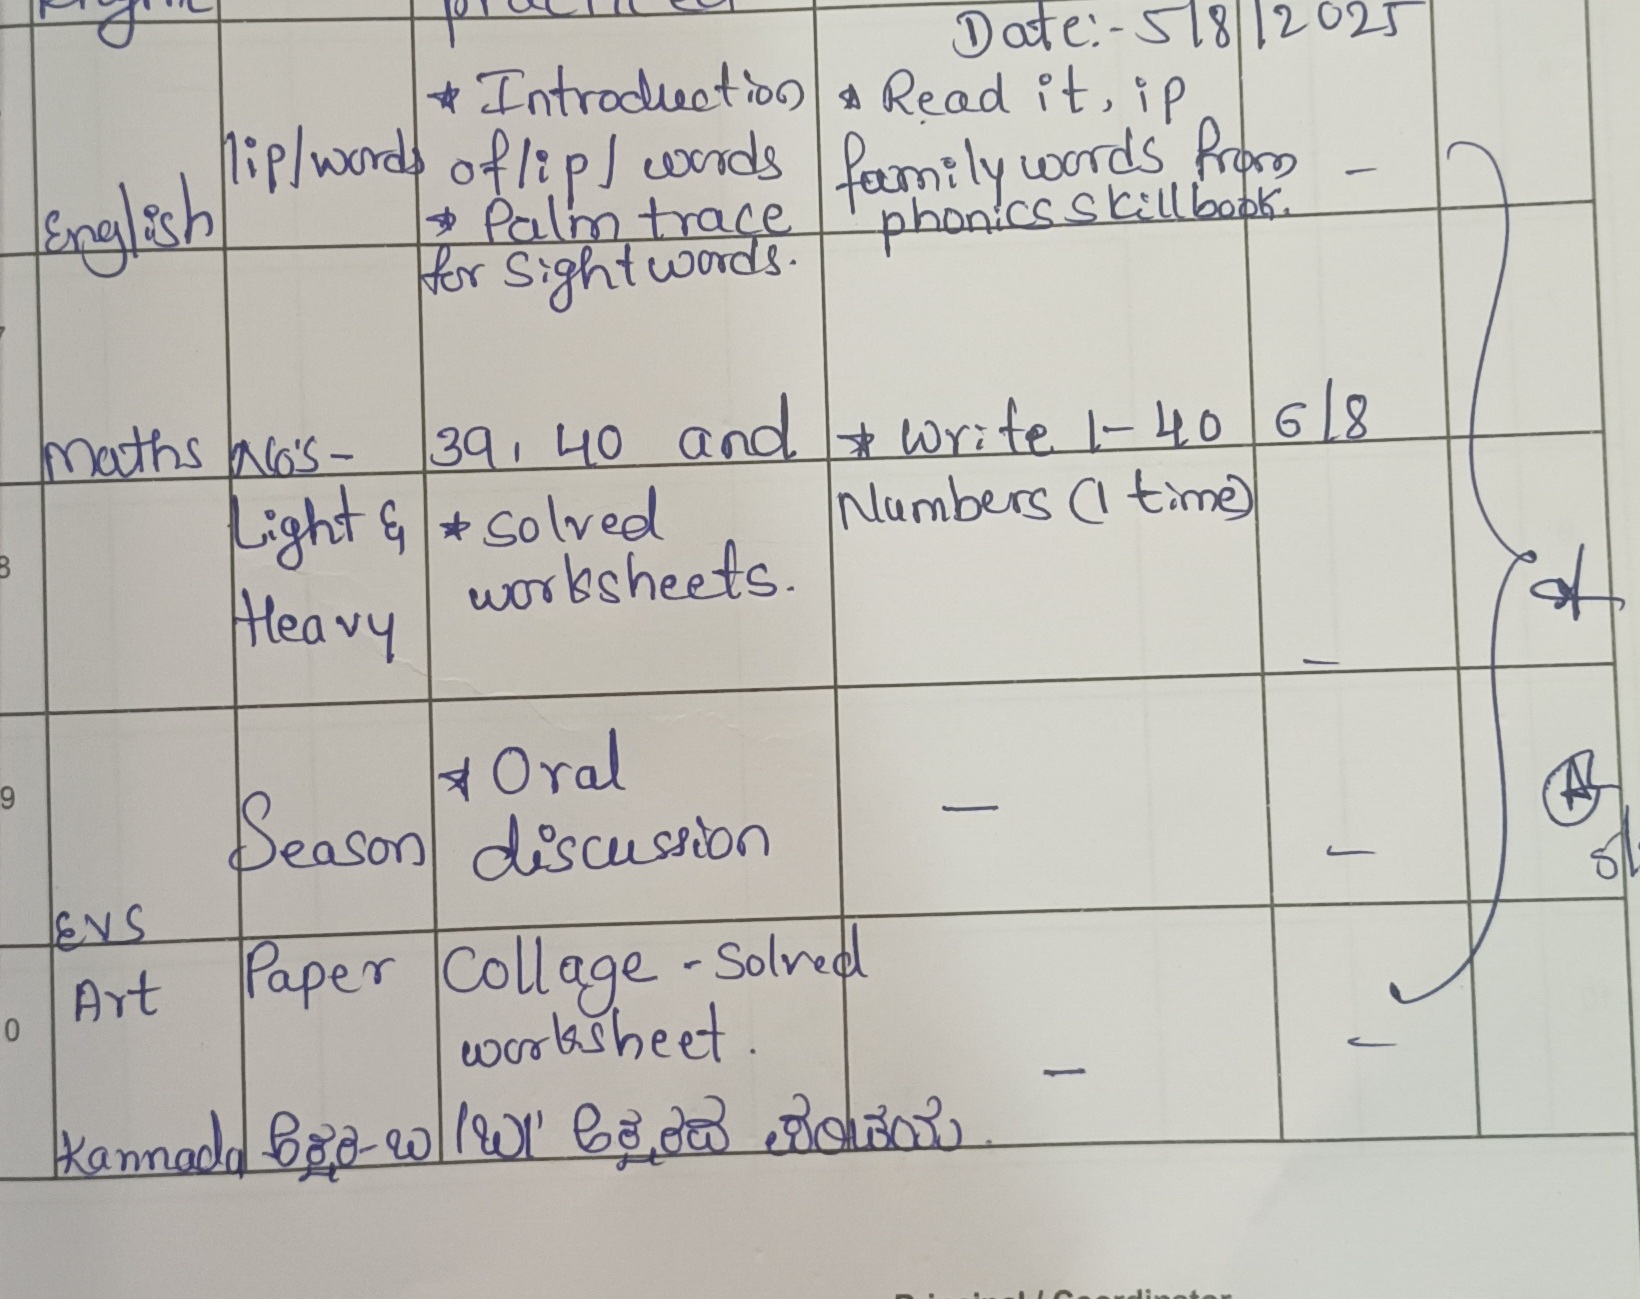 Date:- 5/8/2025
English
/ip/words
* Introduction
of /ip/ words
* Palm trace
for Sight words.
* Read it, ip
family words from
phonics skill book.
-
Maths
No's-
Light &
Heavy
39, 40 and
* solved
worksheets.
* Write 1-40
Numbers (1 time)
6/8
-
8
9
EVS
Season
* Oral
discussion
-
-
0
Art
Paper
Collage - Solved
worksheet.
-
-
Kannada
ಅಕ್ಷರ-ಒ
'ಒ' ಅಕ್ಷರದ ಪರಿಚಯ.